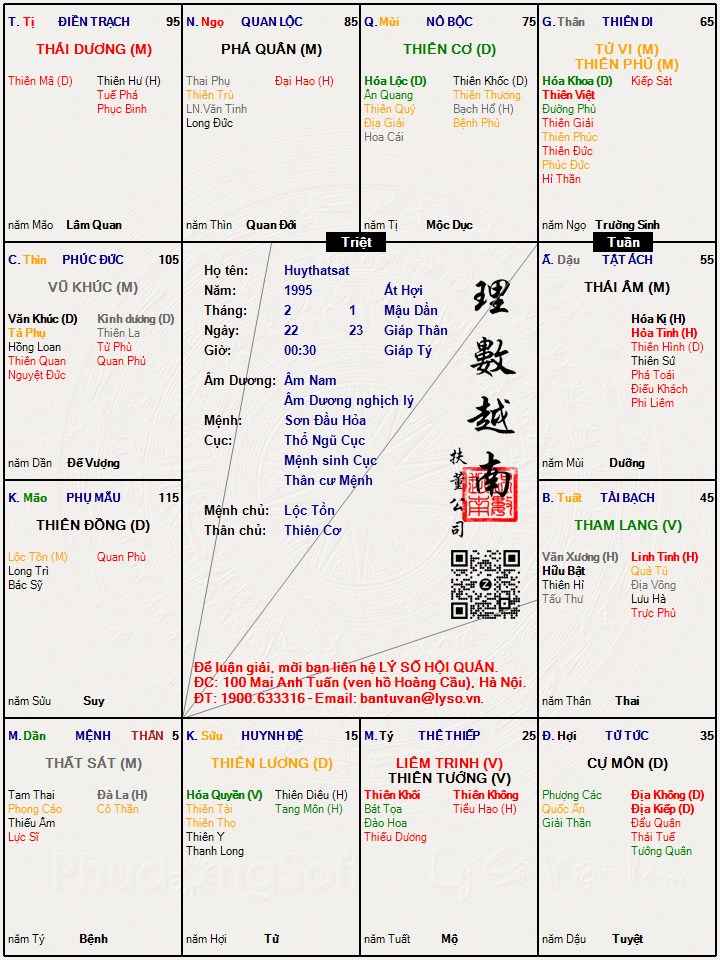 T. Tị ĐIỀN TRẠCH 95
THÁI DƯƠNG (M)
Thiên Mã (D) Thiên Hư (H)
Tuế Phá
Phục Binh
năm Mão Lâm Quan
N. Ngọ QUAN LỘC 85
PHÁ QUÂN (M)
Thai Phụ Đại Hao (H)
Thiên Trù
LN.Văn Tinh
Long Đức
năm Thìn Quan Đới
Q. Mùi NÔ BỘC 75
THIÊN CƠ (D)
Hóa Lộc (D) Thiên Khốc (D)
Ân Quang Thiên Thương
Thiên Quý Bạch Hổ (H)
Địa Giải Bệnh Phù
Hoa Cái
năm Tị Mộc Dục
G. Thân THIÊN DI 65
TỬ VI (M)
THIÊN PHỦ (M)
Hóa Khoa (D) Kiếp Sát
Thiên Việt
Đường Phù
Thiên Giải
Thiên Phúc
Thiên Đức
Phúc Đức
Hỉ Thần
năm Ngọ Trường Sinh
Triệt
Tuần
C. Thìn PHÚC ĐỨC 105
VŨ KHÚC (M)
Văn Khúc (D) Kình dương (D)
Tả Phụ Thiên La
Hồng Loan Tử Phù
Thiên Quan Quan Phủ
Nguyệt Đức
năm Dần Đế Vượng
Họ tên: Huythatsat
Năm: 1995 Ất Hợi
Tháng: 2 1 Mậu Dần
Ngày: 22 23 Giáp Thân
Giờ: 00:30 Giáp Tý
Âm Dương: Âm Nam
Âm Dương nghịch lý
Mệnh: Sơn Đầu Hỏa
Cục: Thổ Ngũ Cục
Mệnh sinh Cục
Thân cư Mệnh
Mệnh chủ: Lộc Tồn
Thân chủ: Thiên Cơ
理數越南
扶董公司
Để luận giải, mời bạn liên hệ LÝ SỐ HỘI QUÁN.
ĐC: 100 Mai Anh Tuấn (ven hồ Hoàng Cầu), Hà Nội.
ĐT: 1900.633316 - Email: bantuvan@lyso.vn.
Ấ. Dậu TẬT ÁCH 55
THÁI ÂM (M)
Hóa Kị (H)
Hỏa Tinh (H)
Thiên Hình (D)
Thiên Sứ
Phá Toái
Điếu Khách
Phi Liêm
năm Mùi Dưỡng
K. Mão PHỤ MẪU 115
THIÊN ĐỒNG (D)
Lộc Tồn (M) Quan Phù
Long Trì
Bác Sỹ
năm Sửu Suy
B. Tuất TÀI BẠCH 45
THAM LANG (V)
Văn Xương (H) Linh Tinh (H)
Hữu Bật Quả Tú
Thiên Hỉ Địa Võng
Tấu Thư Lưu Hà
Trực Phù
năm Thân Thai
M. Dần MỆNH THÂN 5
THẤT SÁT (M)
Tam Thai Đà La (H)
Phong Cáo Cô Thần
Thiếu Âm
Lực Sĩ
năm Tý Bệnh
K. Sửu HUYNH ĐỆ 15
THIÊN LƯƠNG (D)
Hóa Quyền (V) Thiên Diêu (H)
Thiên Tài Tang Môn (H)
Thiên Thọ
Thiên Y
Thanh Long
năm Hợi Tử
M. Tý THÊ THIẾP 25
LIÊM TRINH (V)
THIÊN TƯỚNG (V)
Thiên Khôi Thiên Không
Bát Tọa Tiểu Hao (H)
Đào Hoa
Thiếu Dương
năm Tuất Mộ
Đ. Hợi TỬ TỨC 35
CỰ MÔN (D)
Phượng Các Địa Không (D)
Quốc Ấn Địa Kiếp (D)
Giải Thần Đẩu Quân
Thái Tuế
Tướng Quân
năm Dậu Tuyệt